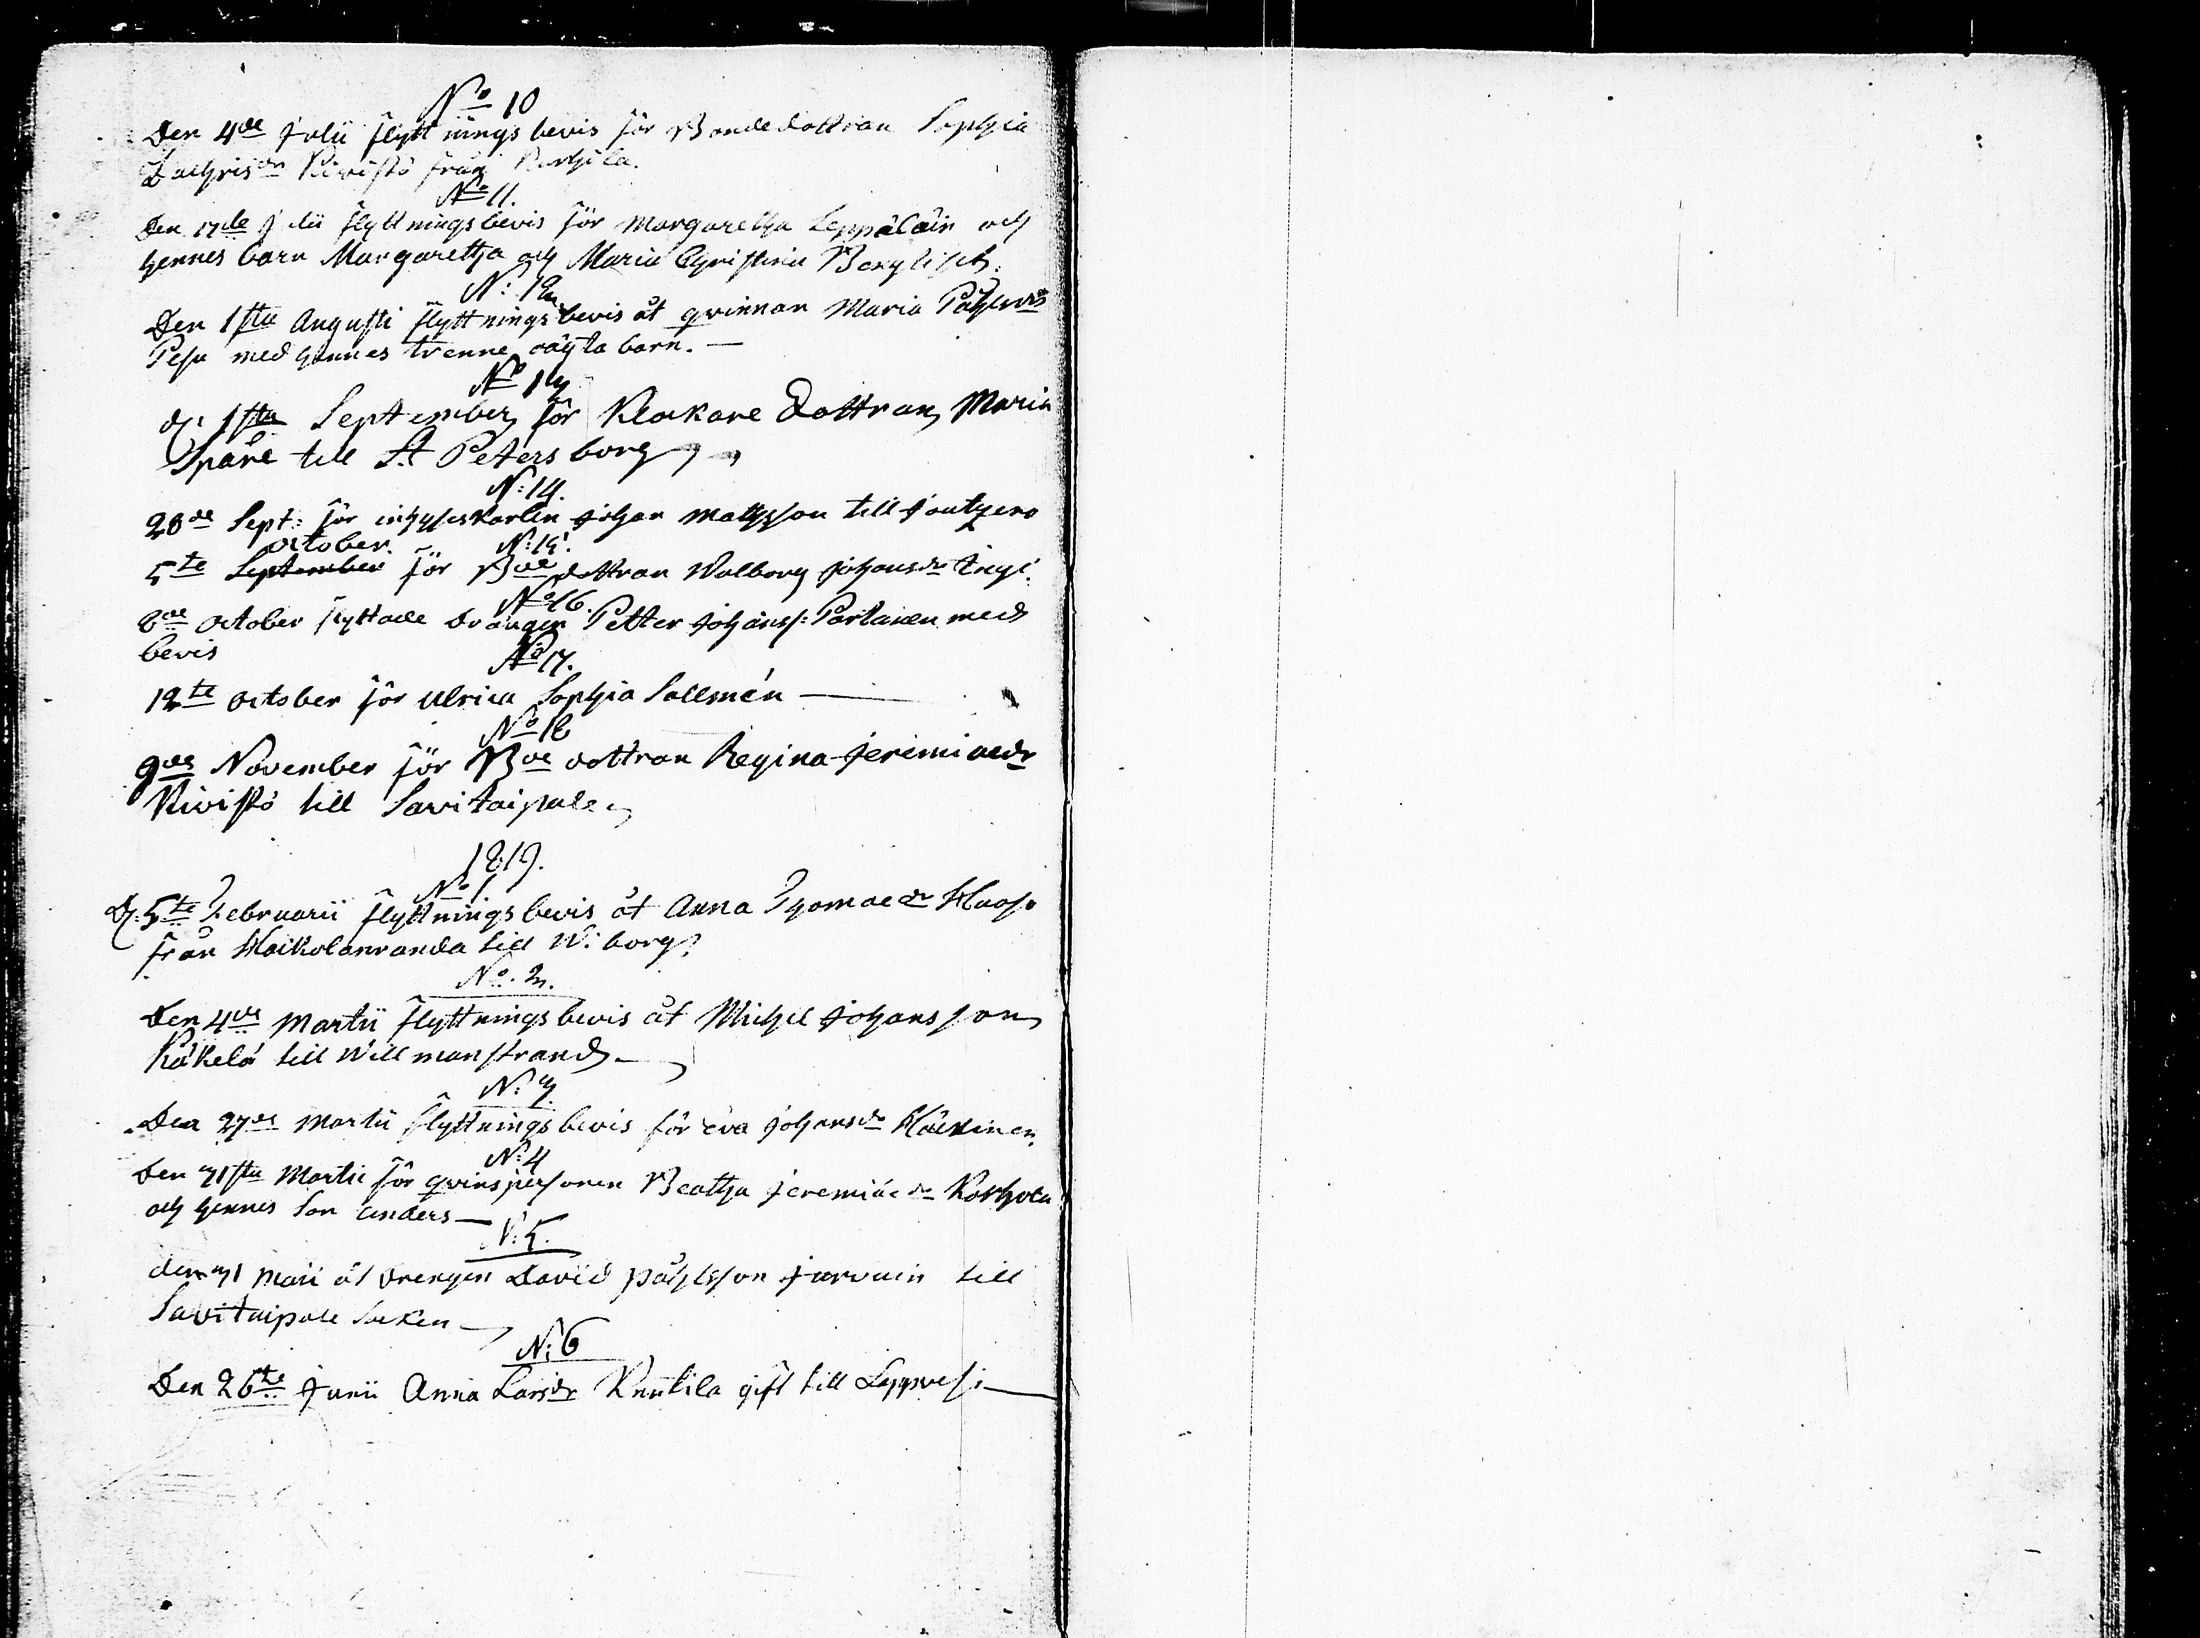 No 10
Den 4de Julii flyttningsbevis för Bondedottran Sophia
Zachrisdr Kivistö från Kurhila.
No 11.
Den 17de Julii flyttningsbevis för Margaretha Leppäläin och
hennes barn Margaretha och Maria Christina
N: 12.
Den 1sta Augusti flyttningsbevis åt qvinnan Maria Påhlsdr
Pesu med hennes trenne oägta barn. —
No 13
d: 1sta September för Klockare Dottran Maria
Spåre till St Petersborg
N: 14.
28de Sept: för inhyseskarlen Johan Mathsson till Joutzeno
October. N: 15.
5te September för Bde dottran Walborg Johansdr
No 16.
8de October flyttade Drängen Petter Johanss: Partanen med
bevis
No 17.
12te October för Ulrica Sophia Sallmén —
No 18
9de November för Bde dottran Regina Jeremiaedr
Kivistö till Savitaipale
1819.
No 1.
D: 5te Februarii flyttningsbevis åt Anna Thomaedr
från till Wiborg
No. 2.
Den 4de Martii flyttningsbevis åt Michel Johansson
Käkelä till Willmanstrand —
N: 3.
Den 27de Martii flyttningsbevis för Eva Johansdr Häkkinen
N: 4
Den 31sta Martii för qvinspersonen Beatha Jeremiaedr
och hennes Son Anders —
N: 5.
den 31 Maii åt Drengen David Påhlsson till
Savitaipale Socken —
N: 6
Den 26te Junii Anna Larsdr Knutila gift till Lappvesi —